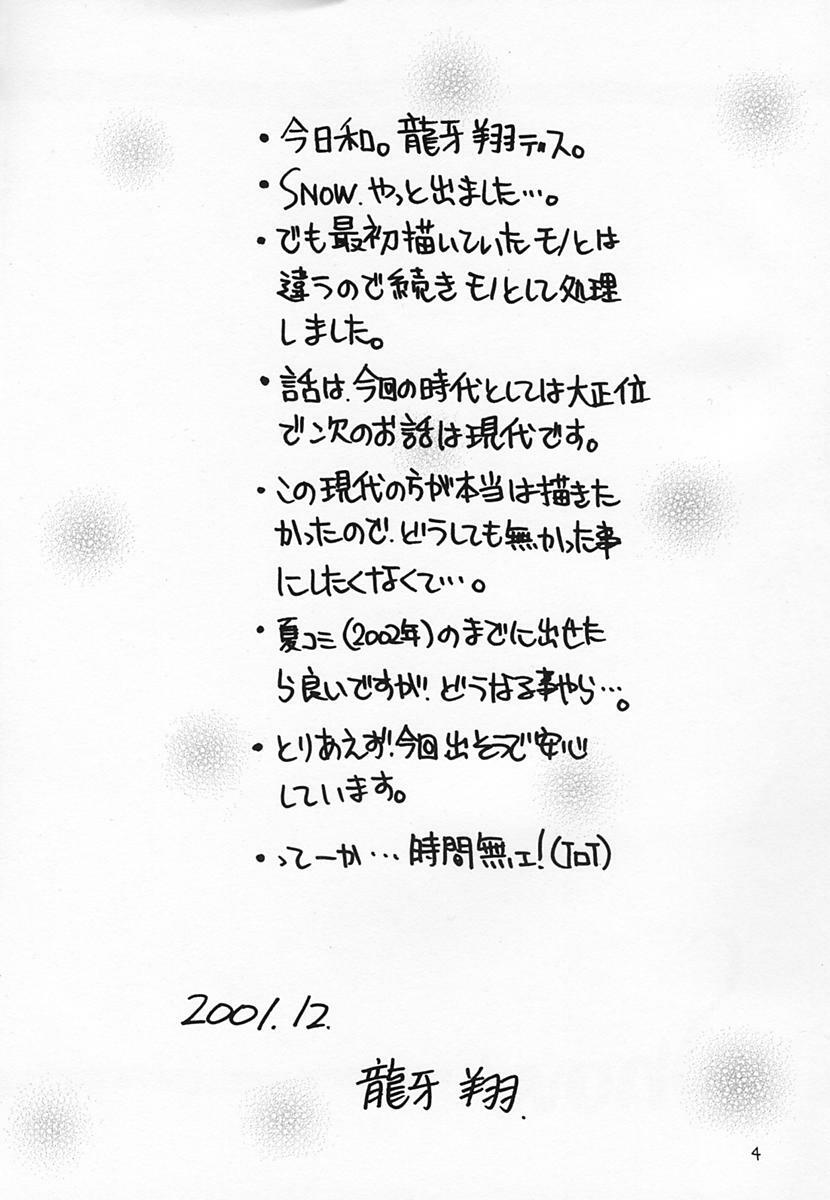 ・今日和。龍牙翔デス。
・SNOW.やっと出ました…。
・でも最初描いていたモノとは
違うので続きモノとして処理
しました。
・話は、今回の時代としては大正位
で次のお話は現代です。
・この現代の方が本当は描きた
かったので、どうしても無かった事
にしたくなくて…。
・夏コミ(2002年)のまでに出せた
ら良いですが、どうなる事やら…。
・とりあえず!今回出そうで安心
しています。
・ってーか…時間無ェ!(ToT)
2001.12.
龍牙 翔.
4